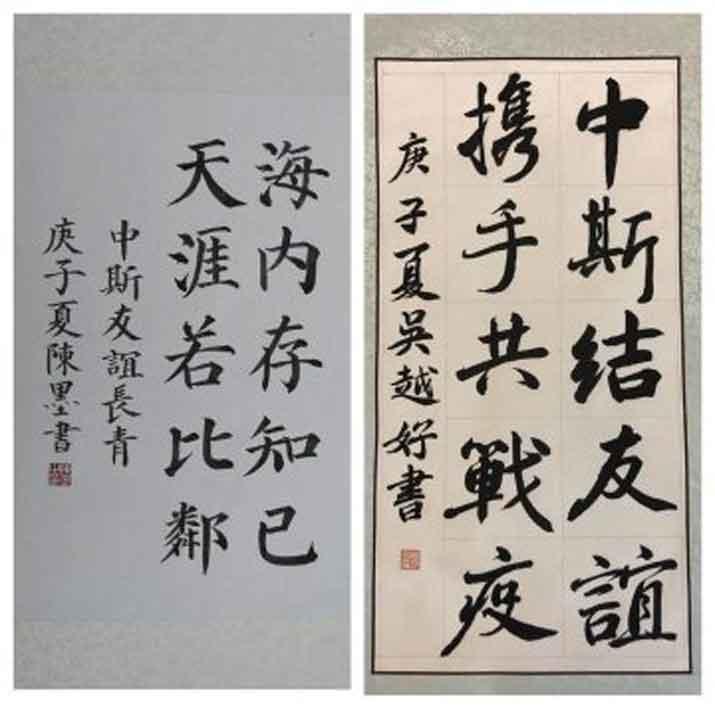 海内存知已
天涯若比鄰
中斯友誼長青
庚子夏陳墨書
中斯结友誼
携手共戰疫
庚子夏吳越好書